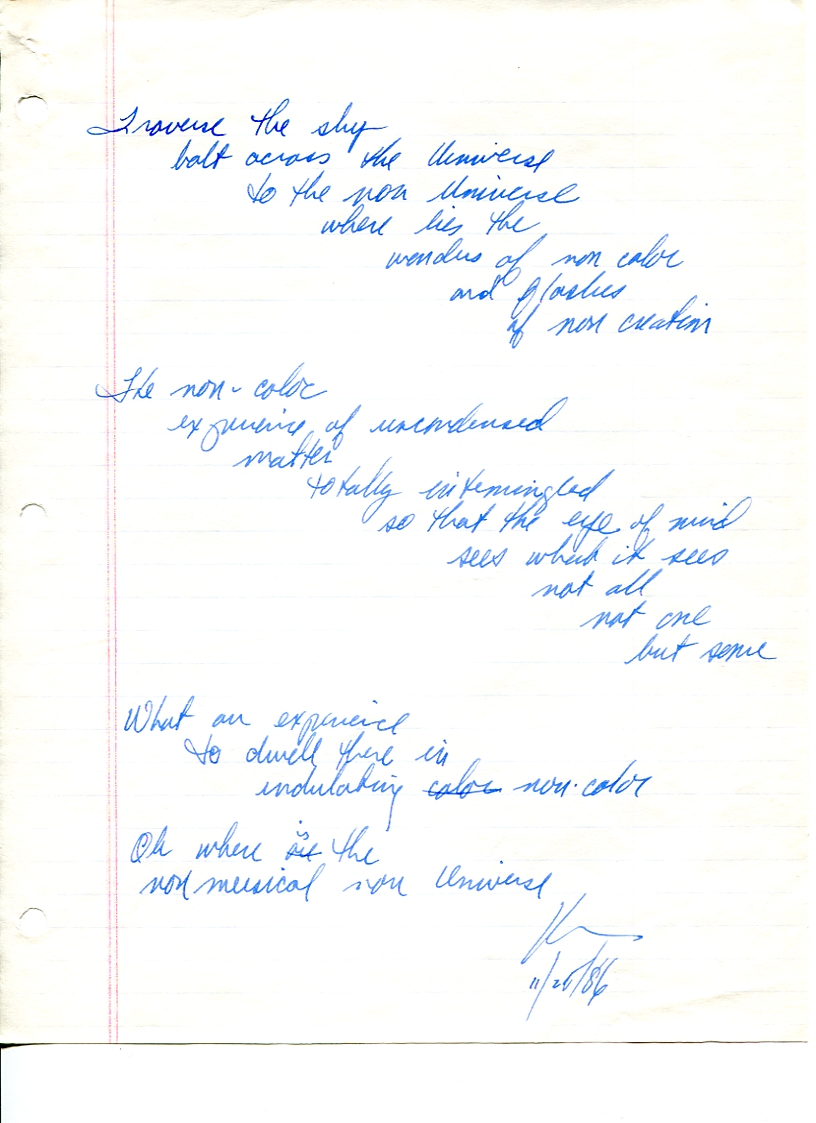 Traverse the sky
bolt across the Universe
to the non Universe
where lies the
wonders of non color
and flashes
of non creation
The non-color
experience of uncondensed
matter
totally intermingled
so that the eye of mind
sees what it sees
not all
not one
but some
What an experience
to dwell there in
undulating color non-color
Oh where is the
non musical non Universe